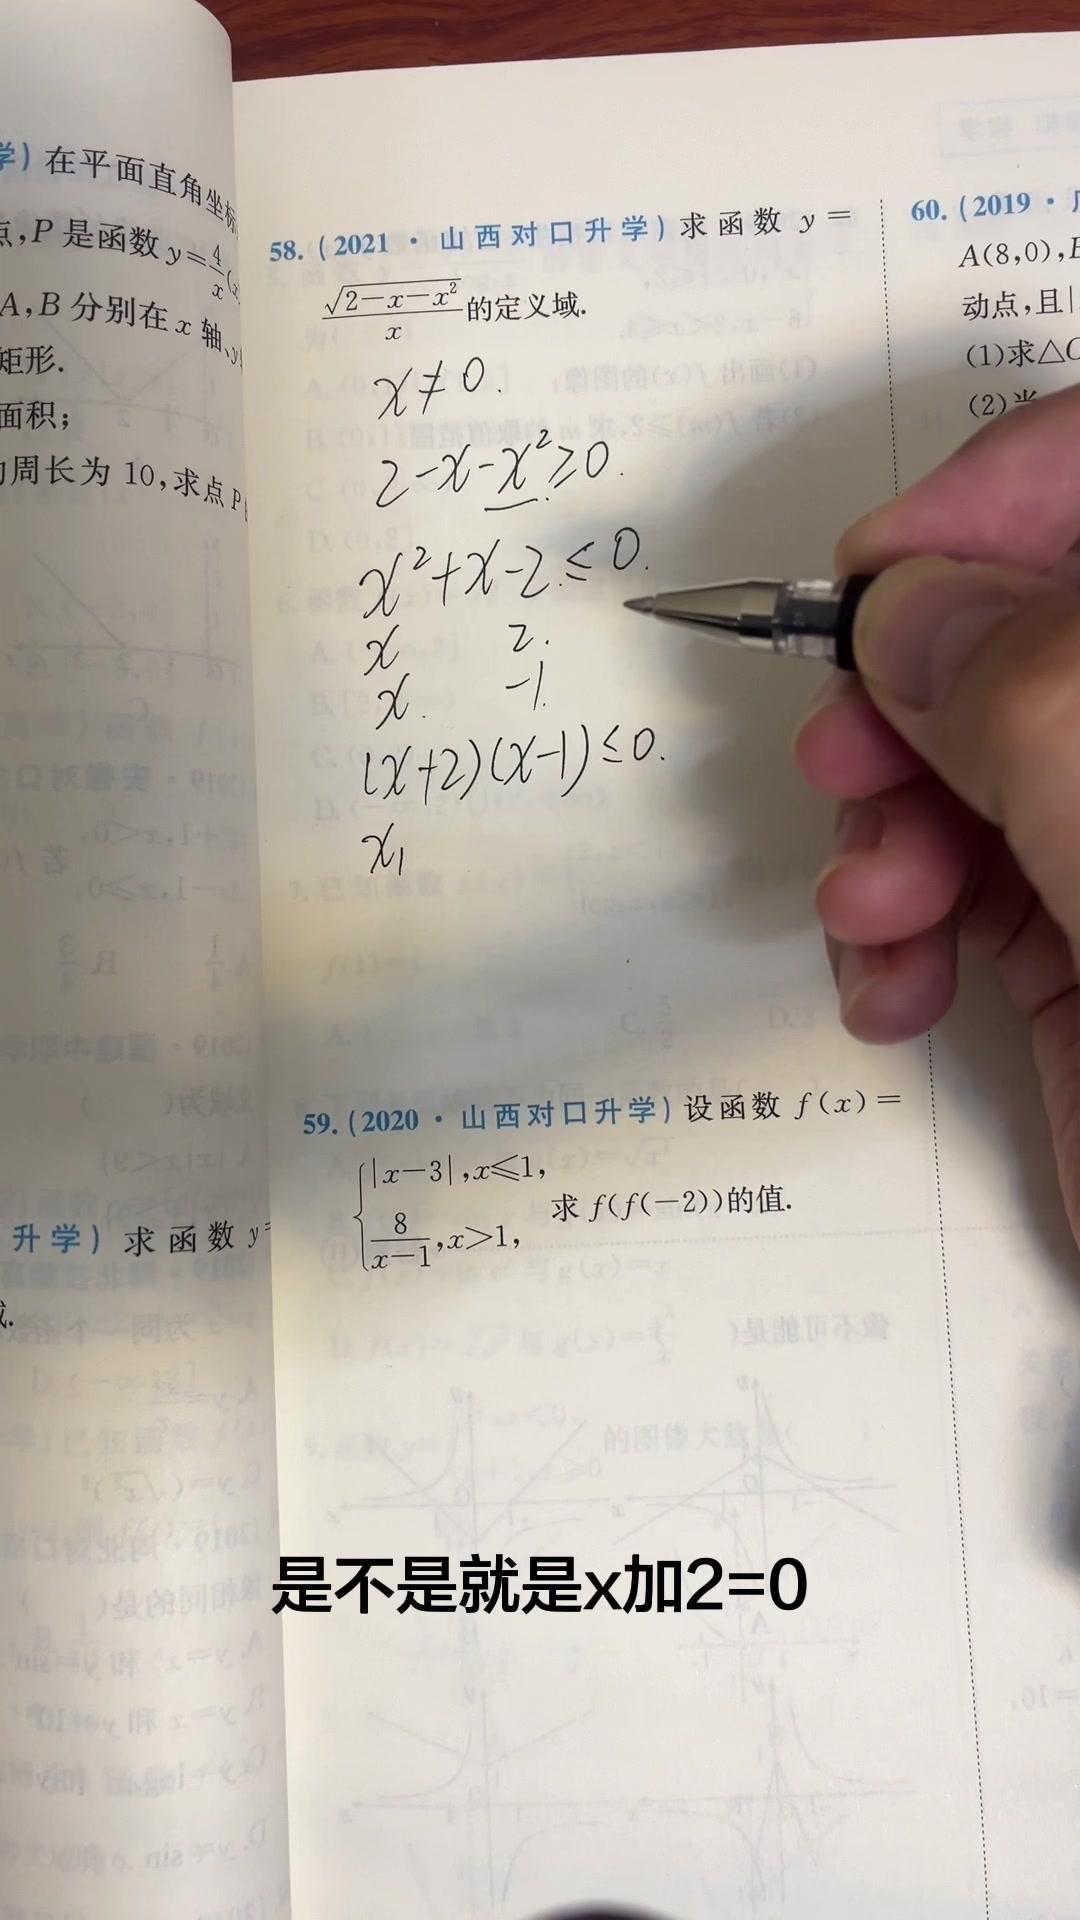 学) 在平面直角坐标
点,P 是函数 y=4/x(x
A,B 分别在 x 轴、y
矩形.
面积;
周长为 10,求点 P
升学) 求函数 y=
58. (2021·山西对口升学) 求函数 y=
√(2-x-x²)/x 的定义域.
x≠0.
2-x-x²≥0.
x²+x-2≤0.
x 2.
x. -1
(x+2)(x-1)≤0.
x₁
59. (2020·山西对口升学) 设函数 f(x)=
{|x-3|,x≤1,
8/(x-1),x>1,
求 f(f(-2))的值.
60. (2019·
A(8,0),
动点,且|
(1)求△
(2)当
是不是就是x加2=0